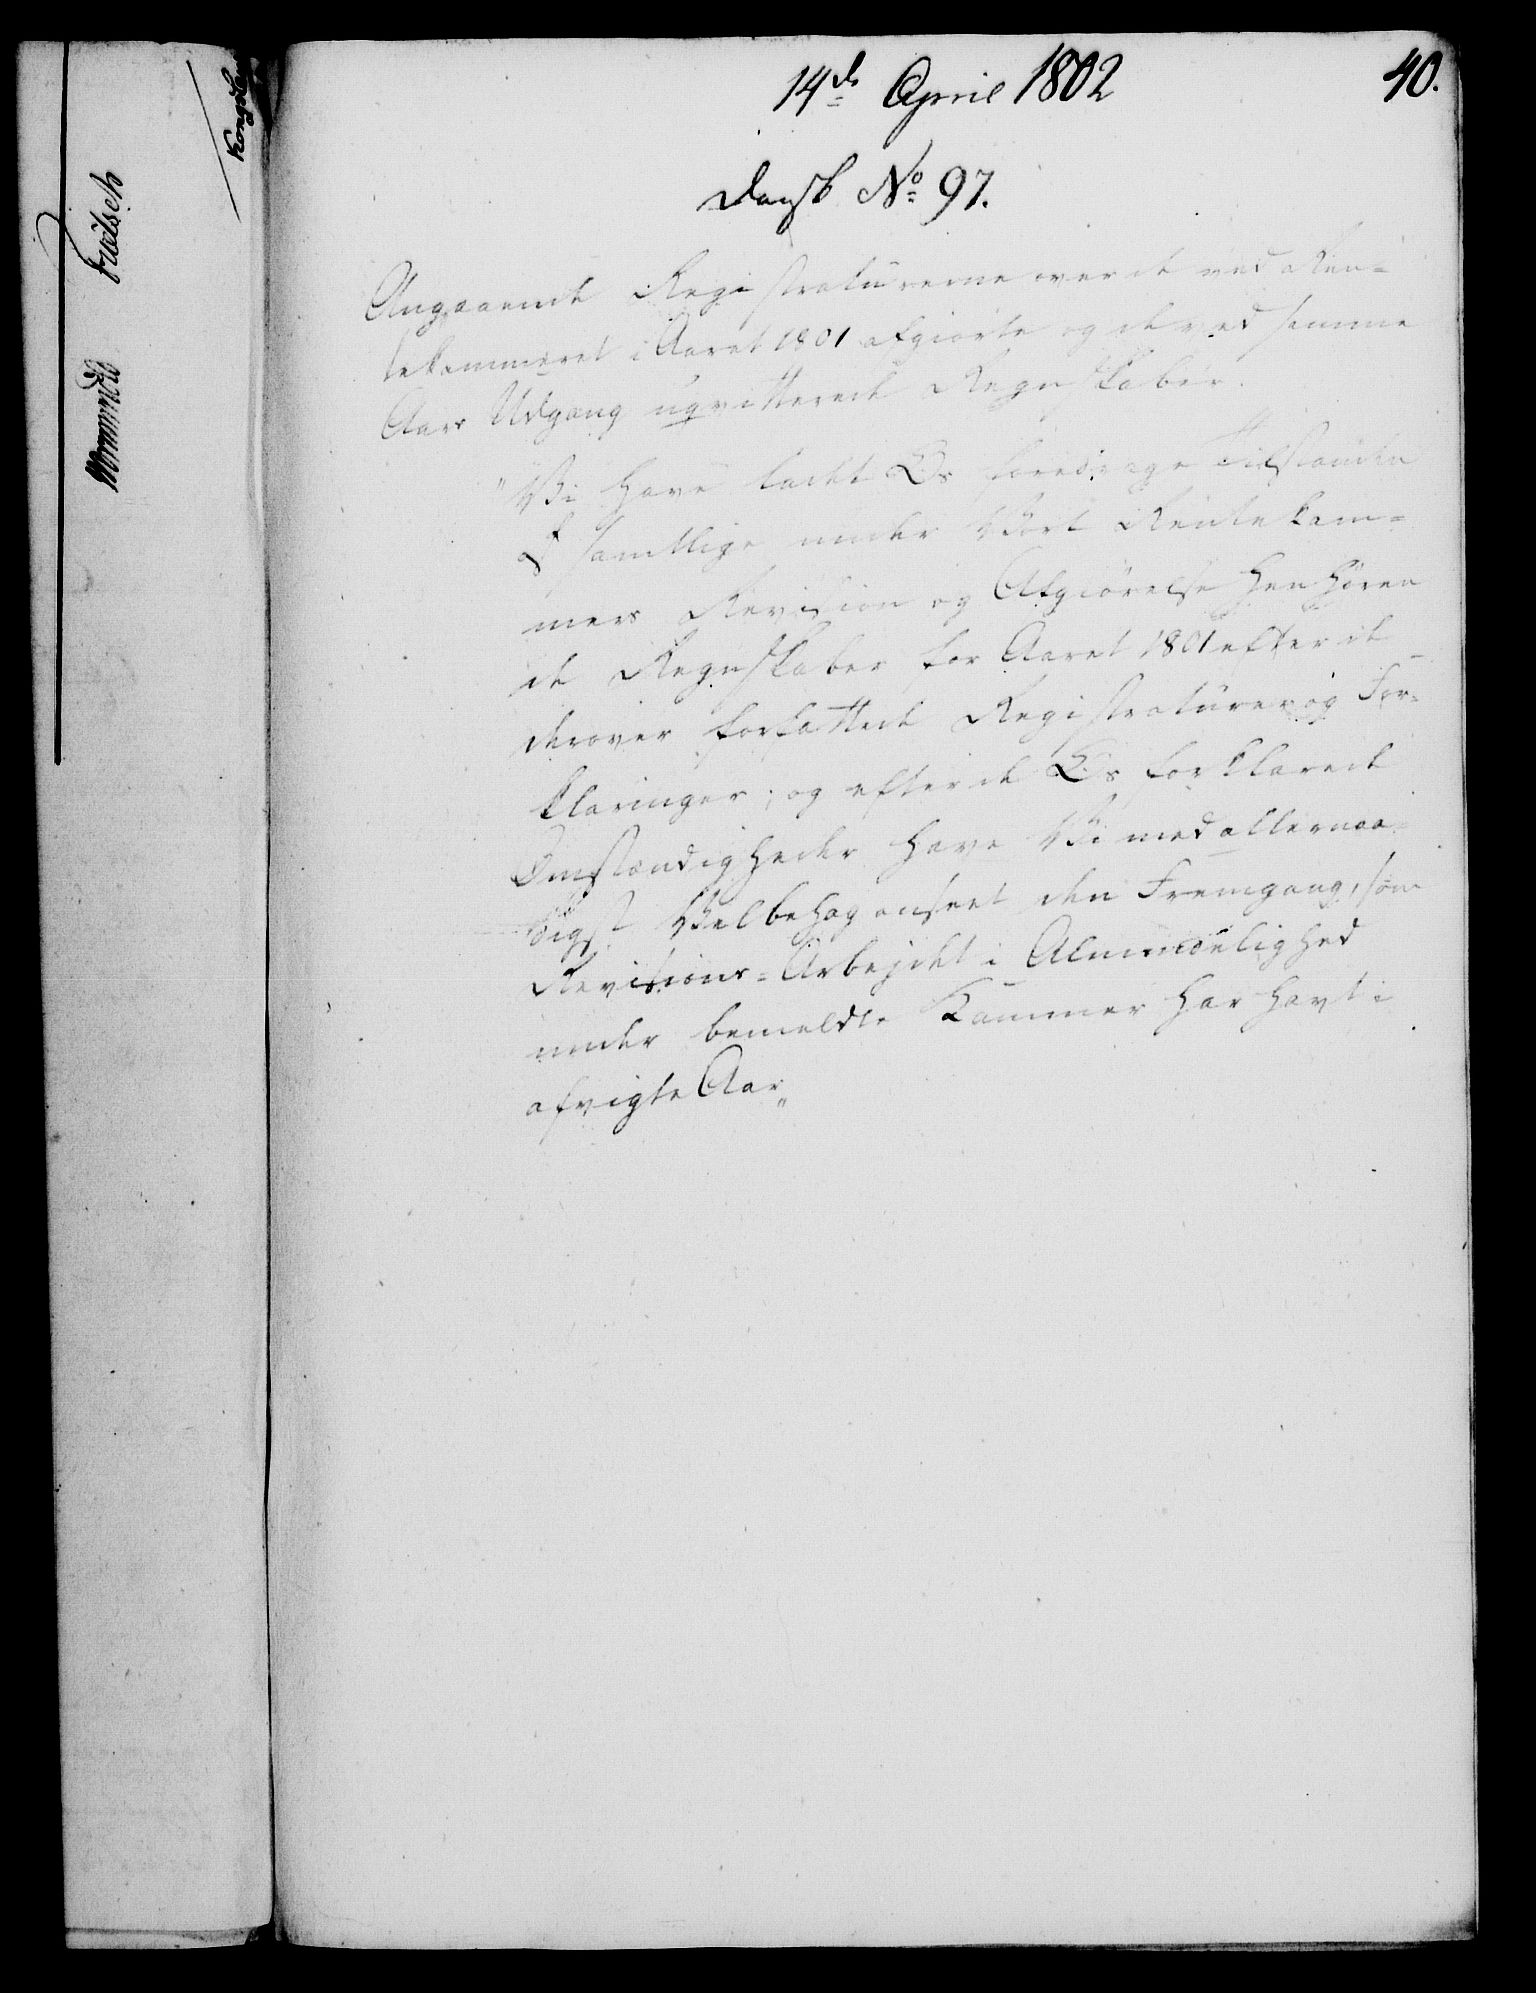 14d April 1802
40.
Dansk No 97.
Angaaende Registraturerne over de ved Ren=
tekammeret i Aaret 1801 afgiorte og de ved samme
Aars Udgang uqvitterede Regnskaber.
"Vi have ladet Os foredrage Tilstanden
af samtlige under Vort Rentekam=
mers Revision og Afgiørelse henhøren
de Regnskaber for Aaret 1801 efter de
derover forfattede Registraturer og For=
klaringer; og efter de Os forklarede
Omstændigheder have Vi med allernaa=
digst Velbehag anseet den Fremgang, som
Revisions=Arbejdet i Almindelighed
under bemeldte Kammer har havt i
afvigte Aar„